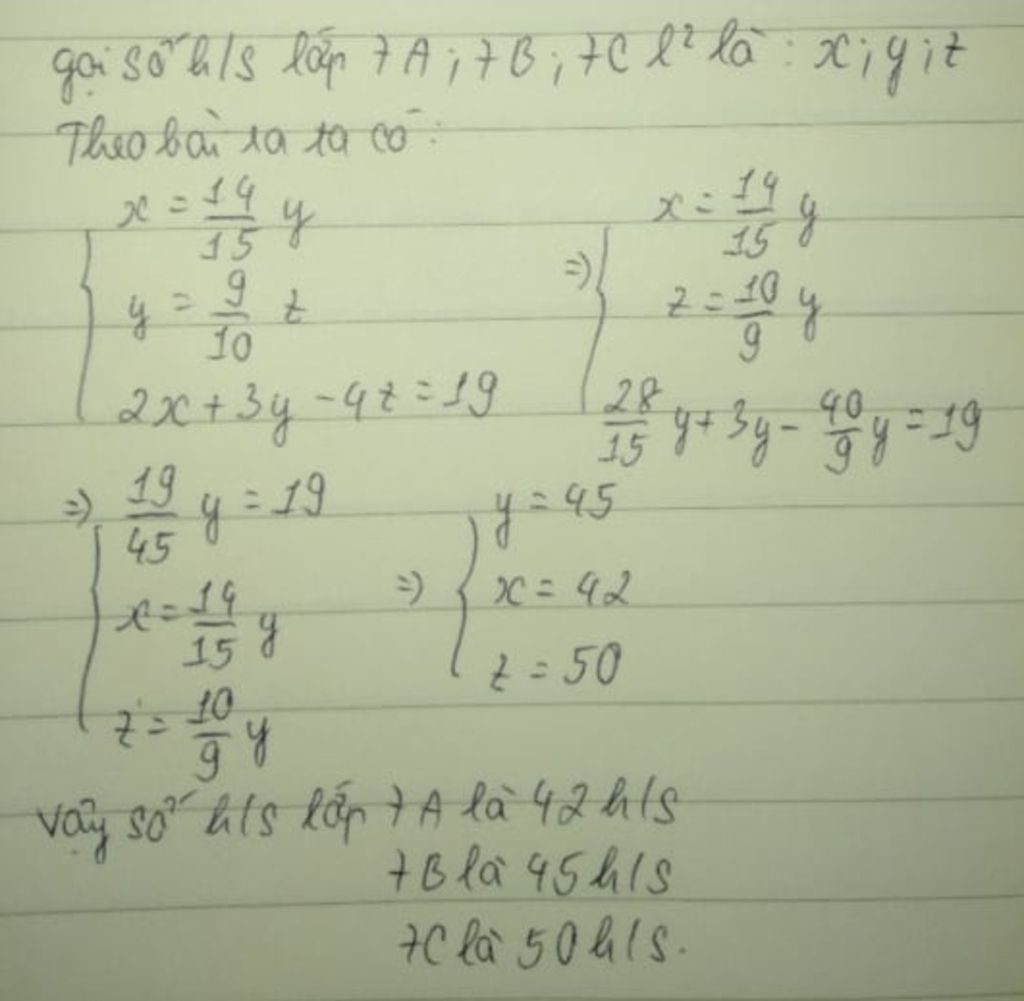 gọi số h/s lớp 7A; 7B; 7C l² là: x; y; z
Theo bài ra ta có:
x = 14/15 y
y = 9/10 z
2x + 3y - 4z = 19
=> x = 14/15 y
z = 10/9 y
28/15 y + 3y - 40/9 y = 19
=> 19/45 y = 19
x = 14/15 y
z = 10/9 y
=> y = 45
x = 42
z = 50
Vậy số h/s lớp 7A là 42 h/s
7B là 45 h/s
7C là 50 h/s.